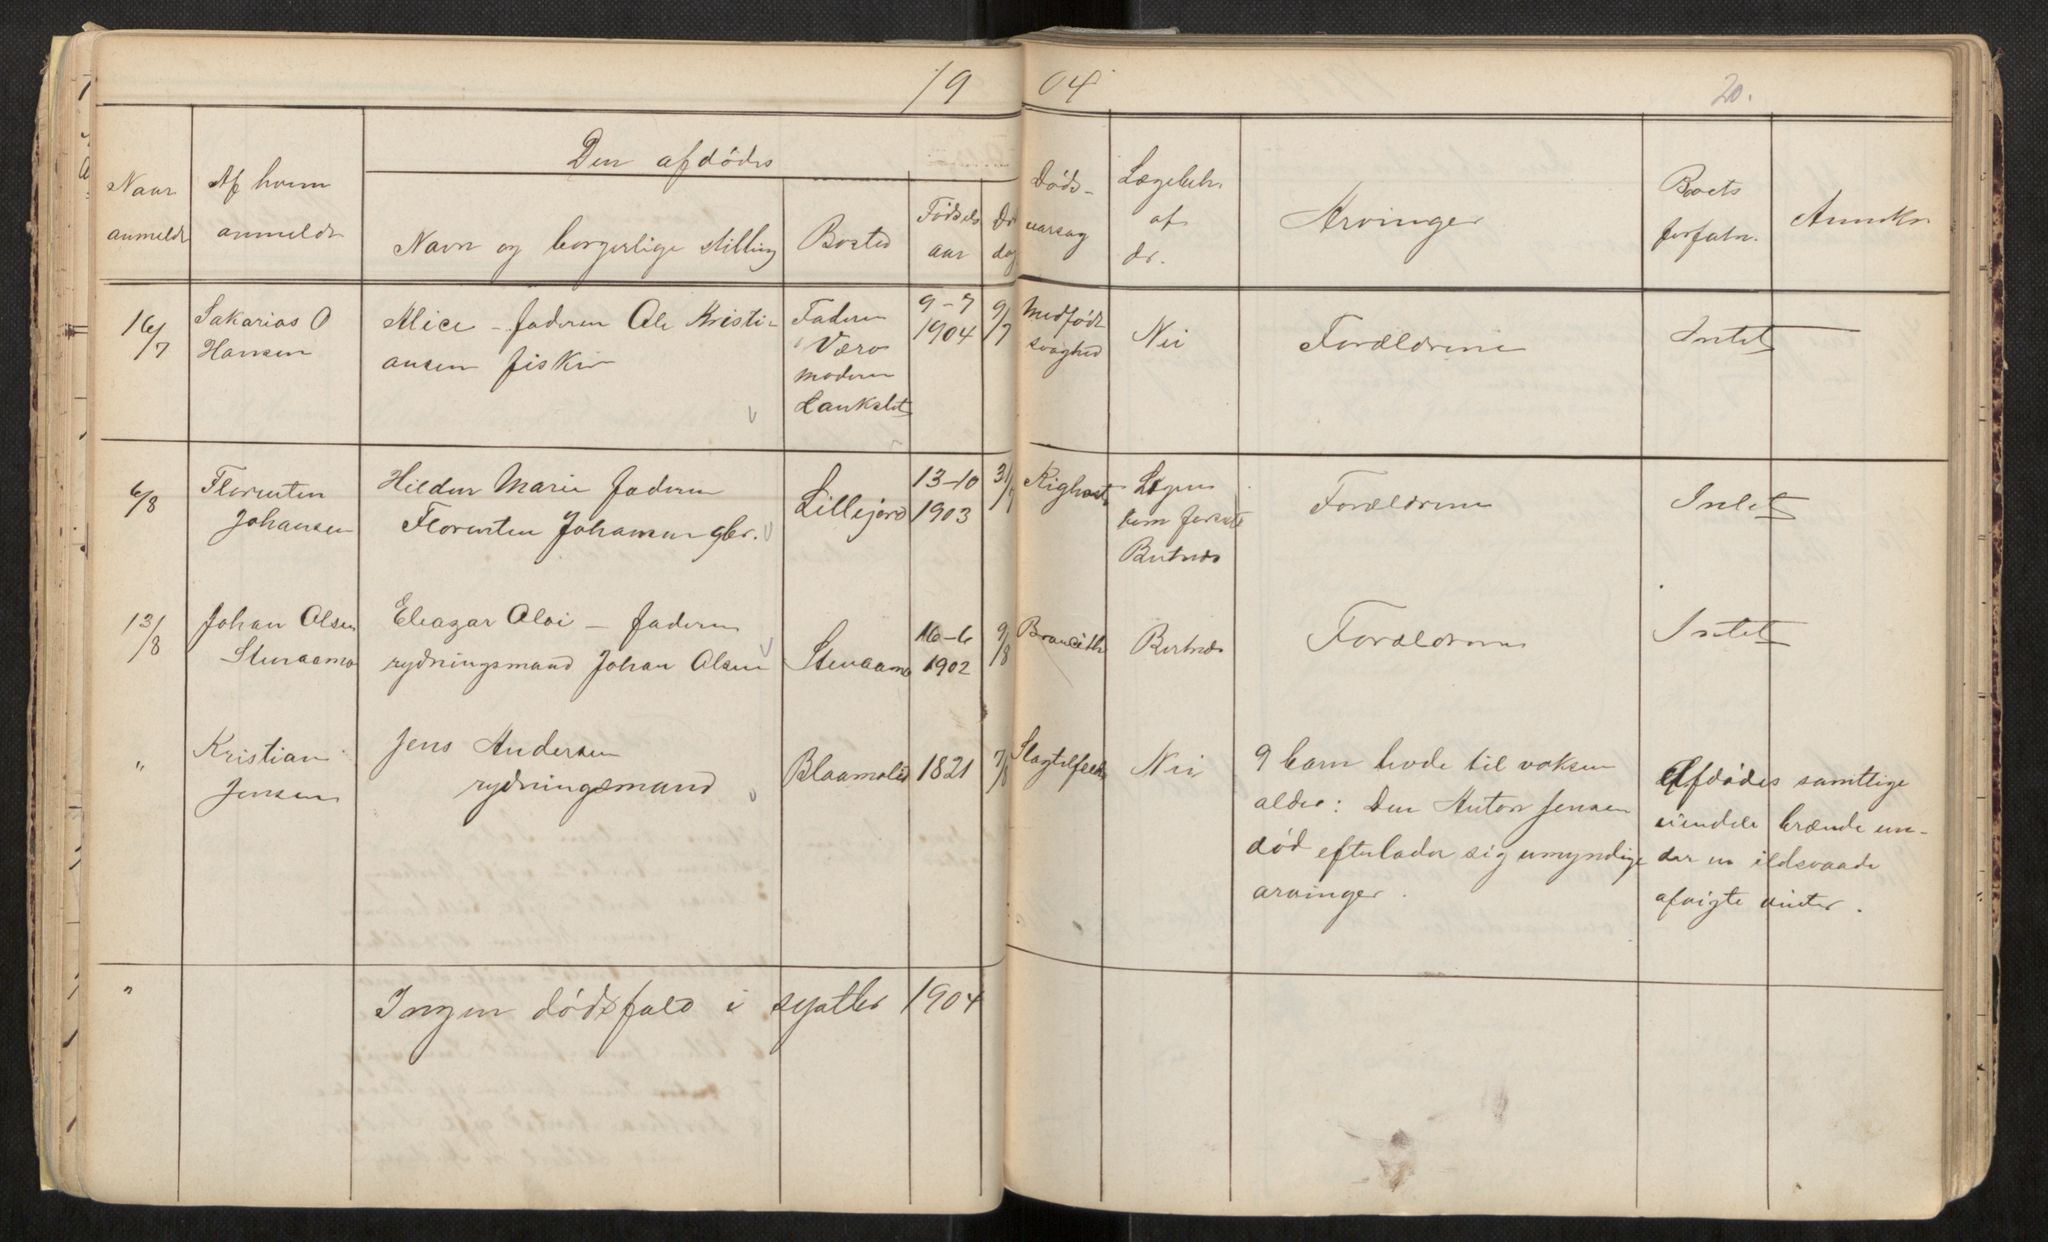 1904
20.
Naar anmeldt
Af hvem anmeldt
Den afdødes
Navn og borgerlige stilling
Bosted
Fødsels aar
Døds-
aarsag
Lægebeh.
af
dr.
Arvinger
Boets
forfatn.
Anmkn
16/7
Sakarias O
Hansen
Alice – faderen Ole Kristi-
ansen fisker
Faderen
Værø
moderen
9-7
1904
9/7
Medfødt
svaghed
Nei
Forældrene
Intet
6/8
Florenten
Johansen
Marie faderen
Florenten Johansen gbr.
Lillejord
13-10
1903
31/7
Kighoste
Lægen
kom
Forældrene
Intet
13/8
Johan Olsen
Stenaamo
Eleazar – faderen
rydningsmand Johan Olsen
Stenaamo
16-6
1902
9/8
Forældrene
Intet
"
Kristian
Jensen
Jens Andersen
rydningsmand
Blaamoli
1821
7/8
Nei
9 barn levde til voksen
alder: Den Anton Jensen
død efterlader sig umyndige
arvinger.
Afdødes samtlige
eiendele brændte un-
der en ildsvaade
afvigte vinter.
"
Ingen dødsfald i septbr 1904